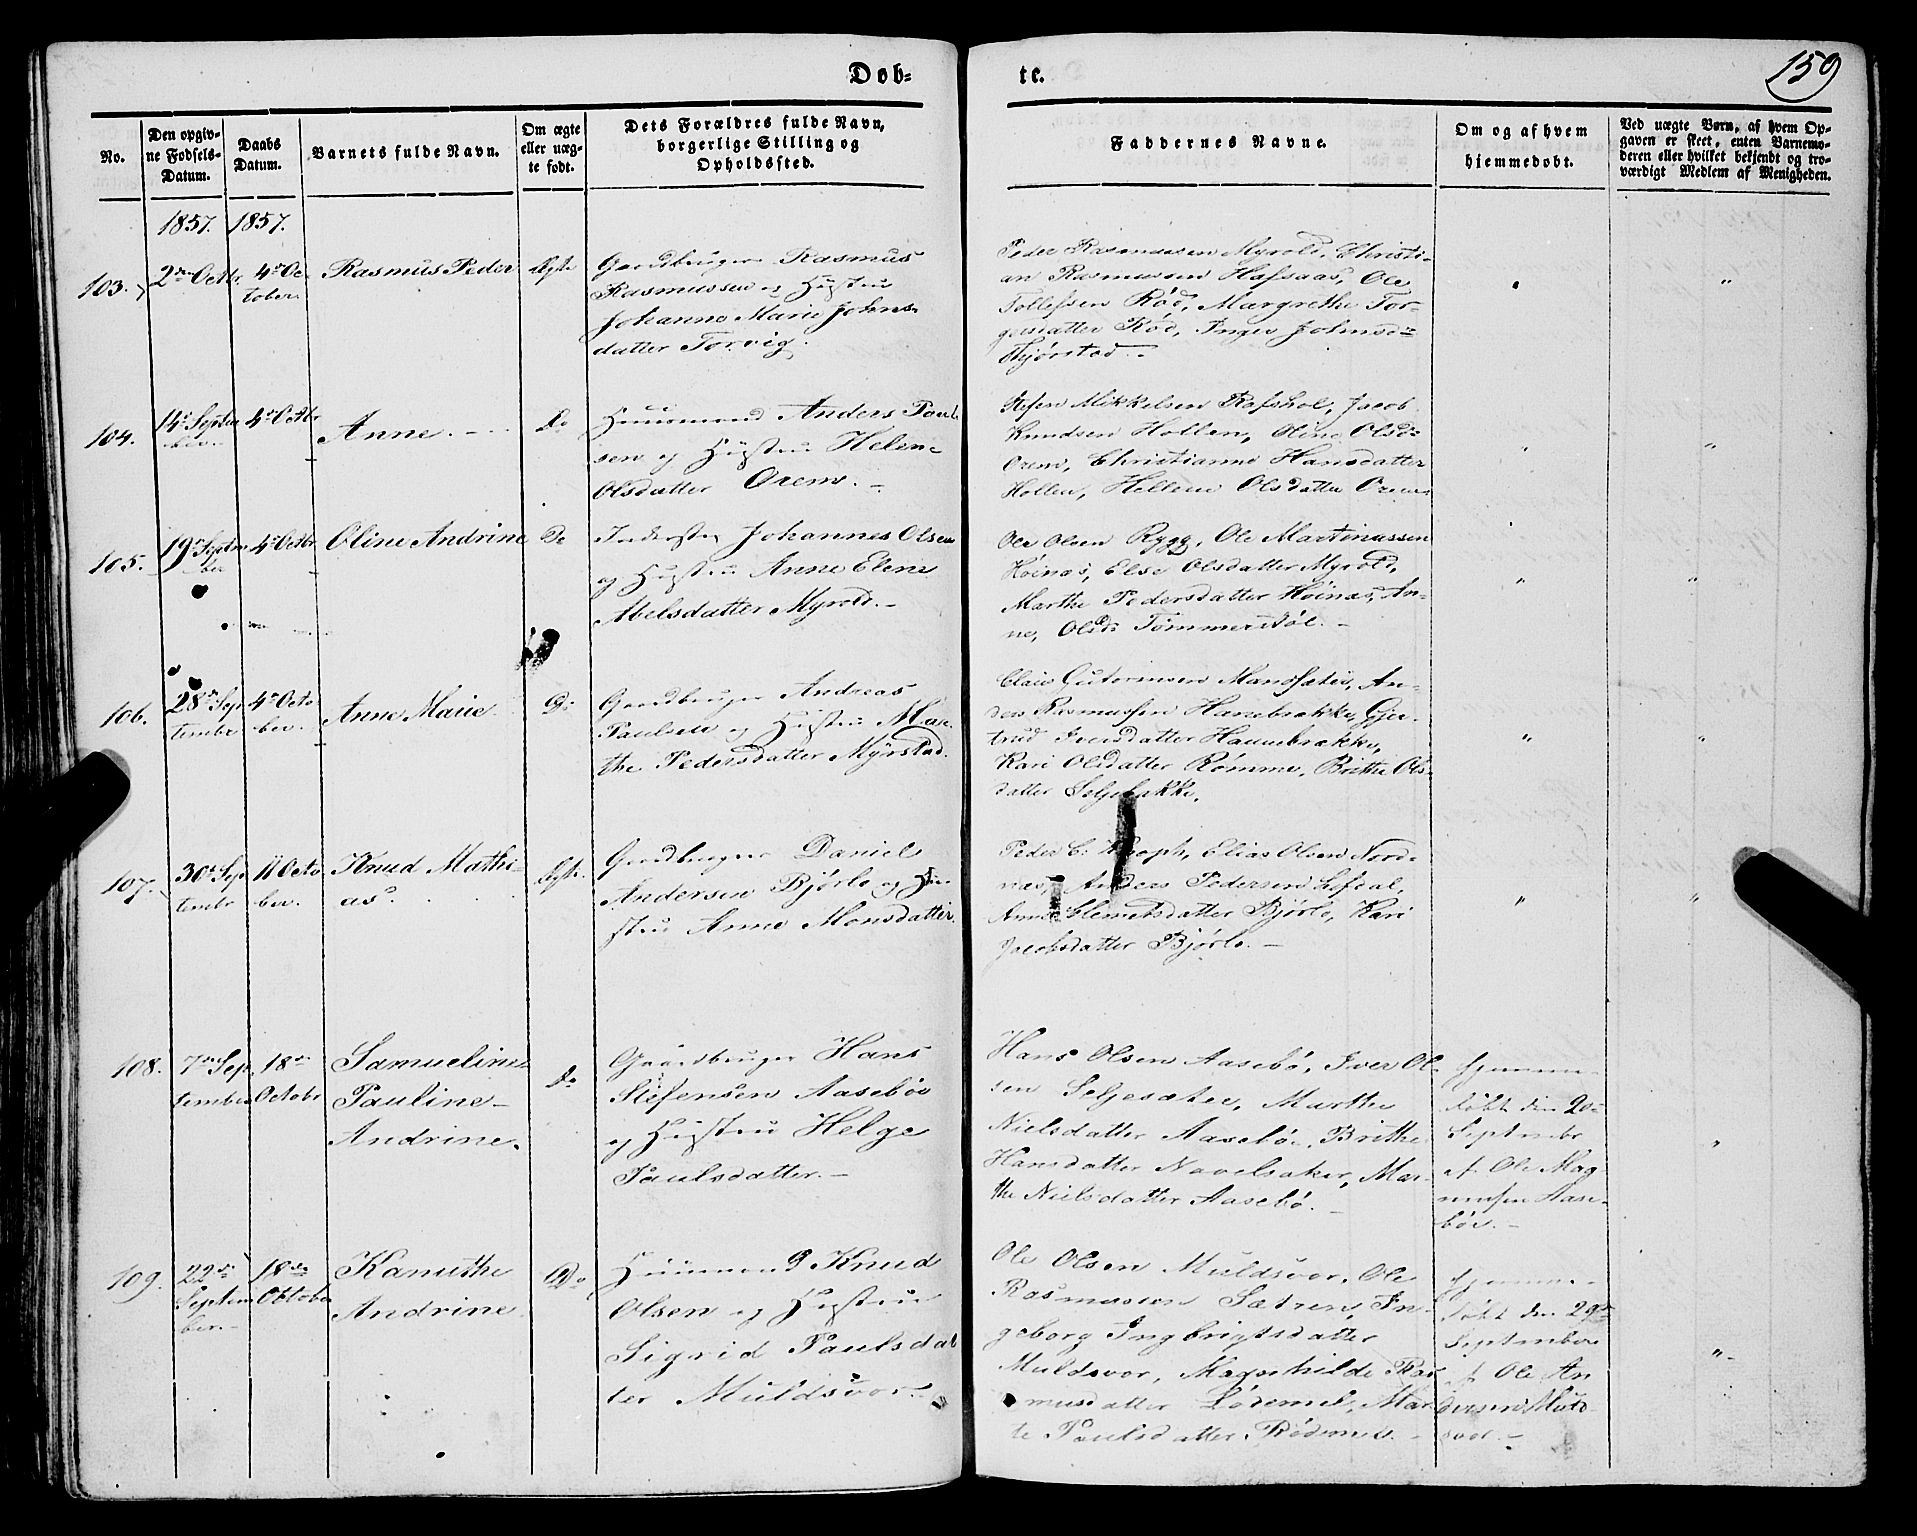 Døb-
te.
159
No.
Den opgiv-
ne Fødsels-
Datum.
Daabs
Datum.
Barnets fulde Navn.
Om ægte
eller uæg-
te født.
Dets Forældres fulde Navn,
borgerlige Stilling og
Opholdssted.
Faddernes Navne.
Om og af hvem
hjemmedøbt.
Ved uægte Børn, af hvem Op-
gaven er skeet, enten Barnemo-
deren eller hvilket bekjendt og tro-
værdigt Medlem af Menigheden.
1857. 1857.
103.
2den Octbr.
4de Oc-
tober.
Rasmus Peder
Ægte
Gaardbruger Rasmus
Rasmussen og Hustru
Johanne Marie Johns-
datter Torvig.
Peder Rasmussen Myrold, Christi-
an Rasmussen Hafsaas, Ole
Tollefsen Rød, Margrethe Tor-
gersdatter Rød, Inger Johnsd=
"
104.
14de Septem
ber.
4de Octbr
Anne.
Do
Huusmand Anders Paul-
sen og Hustru Helene
Olsdatter Orem.
Stefen Mikkelsen Rafshol, Jacob
Knudsen Hollen, Oline Olsd=
Orem, Christianne Hansdatter
Hollen, Hellene Olsdatter Orem
"
"
105.
19de Septem
ber
4de Octbr
Oline Andrine
Do
Inderster Johannes Olsen
og Hustru Anne Elene
Abelsdatter Myrold.
Ole Olsen Rygg, Ole Martinussen
Høinæs, Else Olsdatter Myrold,
Marthe Pedersdatter Høinæs, An-
ne Olsd: Tømmerstøl.
"
"
106.
28de Sep
tembr
4de Octo
ber.
Anne Marie
Do
Gaardbruger Andreas
Paulsen og Hustru Mar-
the Pedersdatter Myrstad.
Claus Guttormsen Mandsæter, An-
ders Rasmussen Hanebrække, Gjer-
trud Iversdatter Hannebrække,
Kari Olsdatter Rømme, Brithe Ols-
datter Seljebakke.
"
"
107.
30te Sep
tembr
11 Octo
ber.
Knud Mathi-
as.
Ægte.
Gaardbruger Daniel
Andersen Bjørlo og Hu-
stru Anne Monsdatter.
Peder C. Knoph, Elias Olsen Nord-
næs, Anders Pedersen Lofdal,
Anne Clemetsdatter Bjørlo, Kari
Jacobsdatter Bjørlo.
"
"
108.
7de Sep
tember
18de
Octobr
Samueline
Pauline
Andrine.
Do
Gaardbruger Hans
Stefensen Aasebøe
og Hustru Helge
Paulsdatter.
Hans Olsen Aasebø, Iver Ol-
sen Seljesæter, Marthe
Nielsdatter Aasebøe, Brithe
Hansdatter Navelsaker, Mar-
the Nielsdatter Aasebø.
Hjemme-
døbt den 20de
Septembr
af Ole Mag-
nussen Aase-
bøe.
"
109.
22de
Septem
ber.
18de
Oktober
Kanuthe
Andrine
Do
Huusmand Knud
Olsen og Hustru
Sigrid Paulsdat
ter Muldsvor.
Ole Olsen Muldsvor, Ole
Rasmussen Sætren, In-
geborg Ingbrigtsdatter
Muldsvor, Magnhilde Ras-
musdatter Lødemel, Mar-
te Paulsdatter Rødemes.
Hjemme-
døbt den 29de
Septembere
af Ole An
dersen Muld-
svor.
"